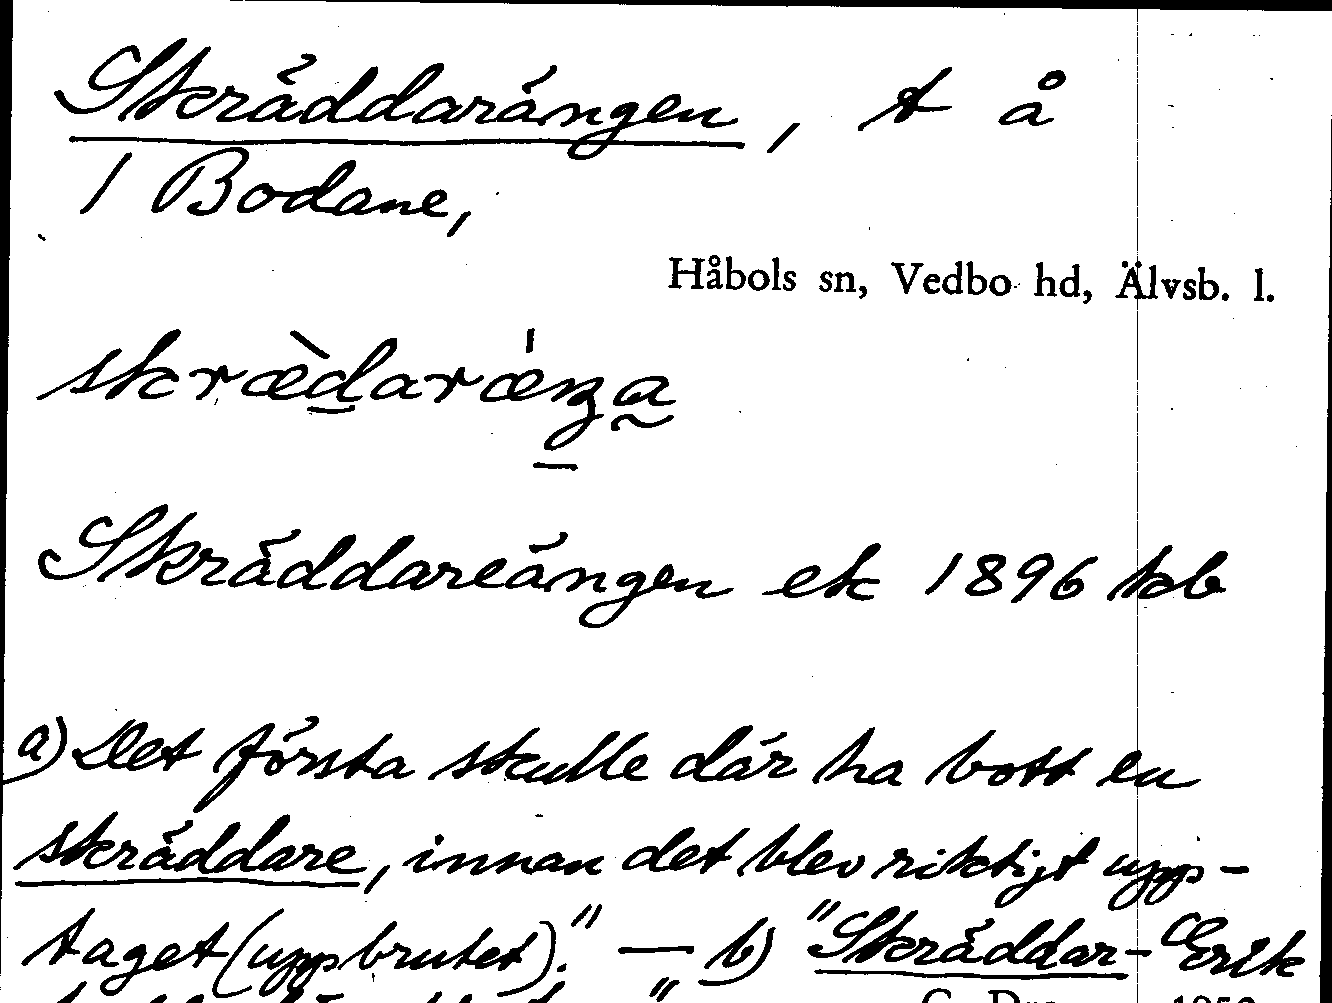 Skräddarängen, t å
1 Bodane,
Håbols sn, Vedbo hd, Älvsb. l.
skræ̀darǽŋa
Skräddareängen ek 1896 kb
a) Det första skulle där ha bott en
skräddare, innan det blev riktigt upp-
taget (uppbrutet)." — b) "Skräddar-Erik